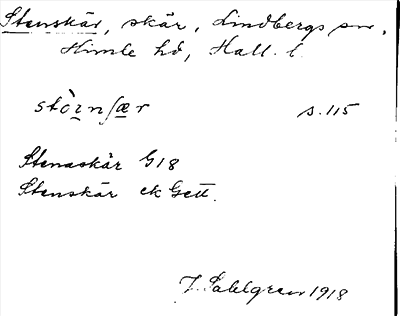 Stenskär, skär, Lindbergs sn,
Himle hd, Hall. l.
s. 115
Stenaskär G18
Stenskär ek Gett.
J. Sahlgren 1918